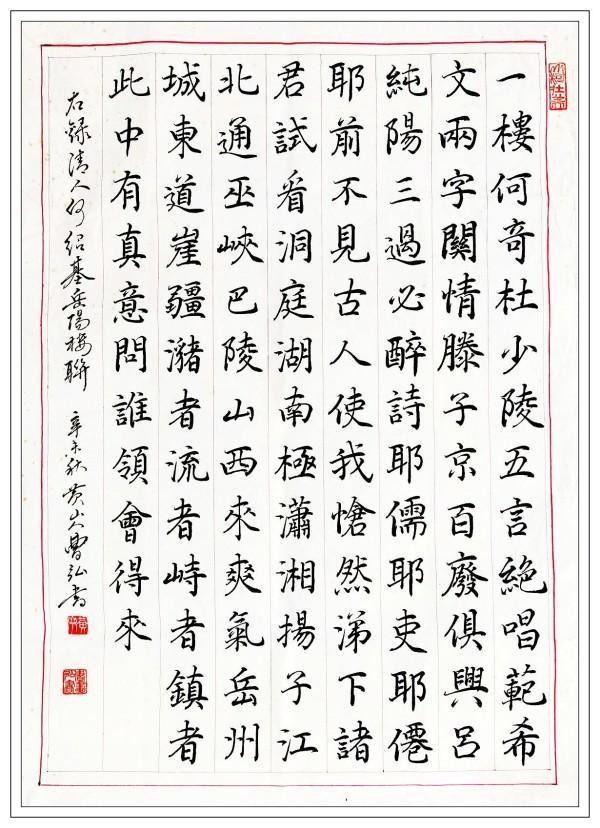 一樓何奇杜少陵五言絕唱範希
文兩字關情滕子京百廢俱興呂
純陽三過必醉詩耶儒耶吏耶僊
耶前不見古人使我愴然涕下諸
君試看洞庭湖南極瀟湘揚子江
北通巫峽巴陵山西來爽氣岳州
城東道崖疆瀦者流者峙者鎮者
此中有真意問誰領會得來
右録清人何紹基岳陽樓聯 辛未秋黄山曹弘書